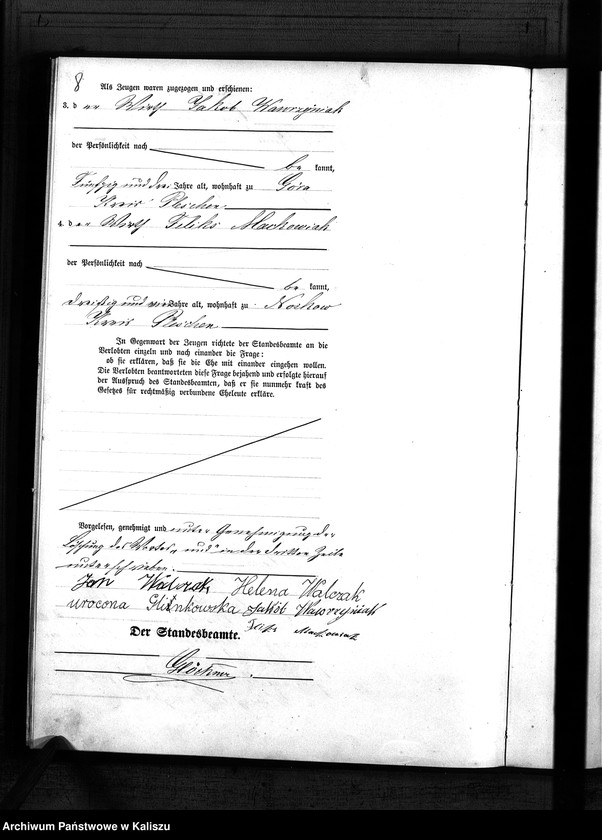 8
Als Zeugen waren zugezogen und erschienen:
3. der Wirth Jakob Wawrzyniak
der Persönlichkeit nach
be kannt,
fünfzig und drei Jahre alt, wohnhaft zu Góra
Kreis Pleschen
4. der Wirth Feliks Maćkowiak
der Persönlichkeit nach
be kannt,
dreißig und vier Jahre alt, wohnhaft zu Noskow
Kreis Pleschen
In Gegenwart der Zeugen richtete der Standesbeamte an die
Verlobten einzeln und nach einander die Frage:
ob sie erklären, daß sie die Ehe mit einander eingehen wollen.
Die Verlobten beantworteten diese Frage bejahend und erfolgte hierauf
der Ausspruch des Standesbeamten, daß er sie nunmehr kraft des
Gesetzes für rechtmäßig verbundene Eheleute erkläre.
Vorgelesen, genehmigt und unter Genehmigung der
Löschung des Wortes „und" in der dritten Zeile
unterschrieben.
Jan Walczak Helena Walczak
urocona Jakób Wawrzyniak
Maćkowiak
Der Standesbeamte.
Glöckner
Archiwum Państwowe w Kaliszu